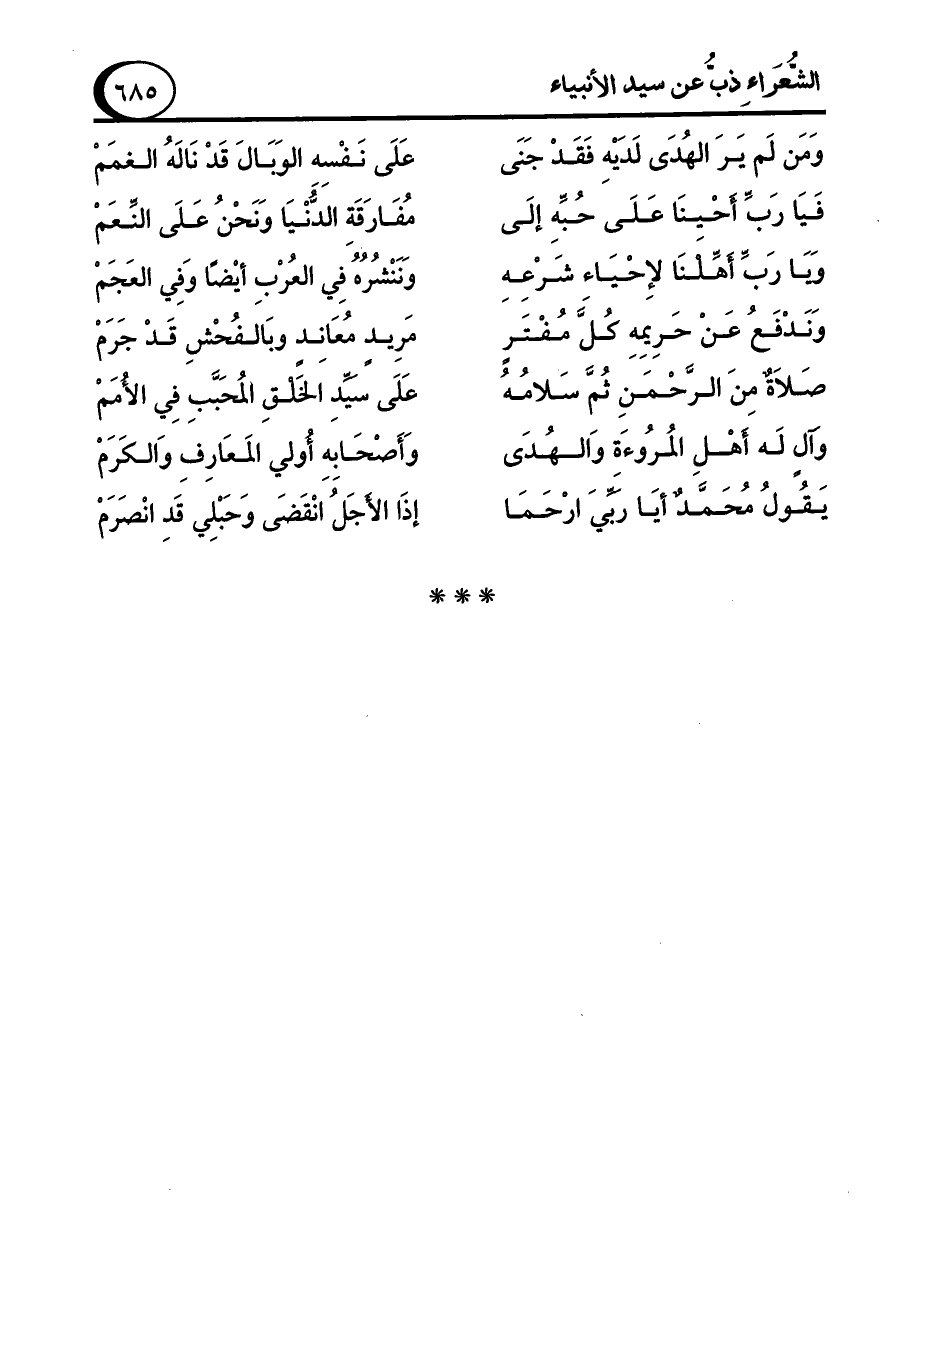 الشُّعَرَاءِ ذبُّ عن سيد الأنبياء ٦٨٥
وَمَن لَم يَرَ الهُدَى لَدَيْهِ فَقَدْ جَنَى عَلَى نَفْسِهِ الوَبَالَ قَدْ نَالَهُ الغمَمْ
فَيَا رَبِّ أَحْيِنَا عَلَى حُبِّهِ إِلَى مُفَارَقَةِ الدُّنْيَا وَنَحْنُ عَلَى النِّعَمْ
وَيَا رَبِّ أَهِّلْنَا لِإِحْيَاءِ شَرْعِهِ وَنَنْشُرُهُ فِي العُرْبِ أيْضًا وَفِي العَجَمْ
وَنَدْفَعُ عَنْ حَرِيمِهِ كُلَّ مُفْتَرٍ مَرِيدٍ مُعَانِدٍ وبَالفُحْشِ قَدْ جَرَمْ
صَلاَةٌ مِنَ الرَّحْمَنِ ثُمَّ سَلامُهُ عَلَى سَيِّدِ الخَلْقِ المُحَبَّبِ فِي الأُمَمْ
وَآلٍ لَهُ أَهْلِ المُرُوءَةِ وَالهُدَى وَأَصْحَابِهِ أُولِي المَعَارِفِ وَالكَرَمْ
يَقُولُ مُحَمَّدٌ أيَا رَبِّيَ ارْحَمَا إِذَا الأَجَلُ انْقَضَى وَحَبْلِي قَدِ انْصَرَمْ
* * *